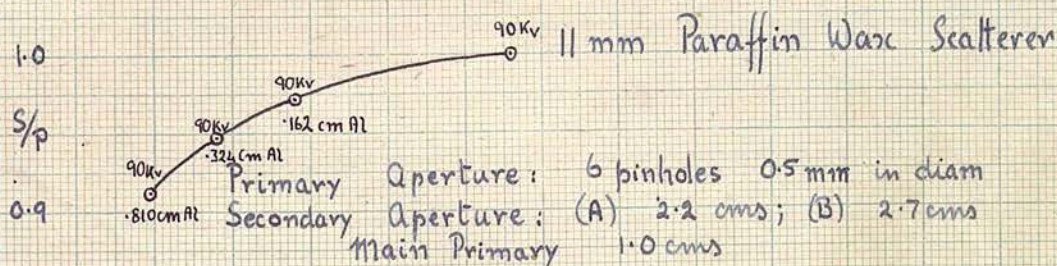 90Kv 11 mm Paraffin Wax Scatterer
1.0
90Kv
.162 cm Al
S/p
90Kv
.324 cm Al
90Kv
Primary Aperture: 6 pinholes 0.5 mm in diam
0.9 .810cm Al Secondary Aperture: (A) 2.2 cms; (B) 2.7cms
Main Primary 1.0 cms